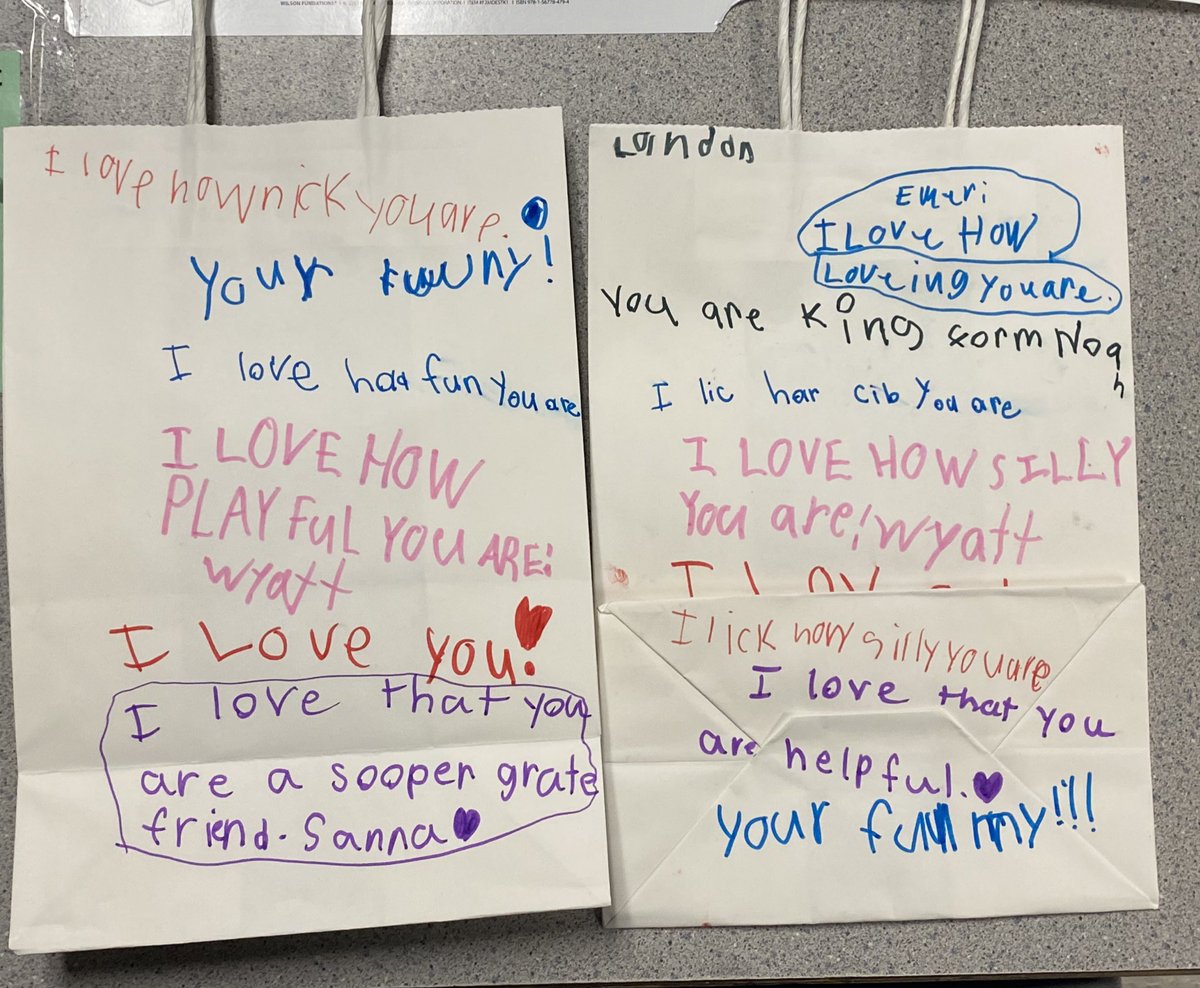 WILSON FUNDATIONS® ISBN 978-1-56778-479-4
I love how nick you are.
your funny!
I love how fun you are
I LOVE HOW
PLAYFUL YOU ARE!
Wyatt
I Love you!
I love that you
are a sooper grate
friend. Sanna
Landon
Emeri
I Love How
Loveing you are.
You are King form Noah
I lic har cib you are
I LOVE HOW SILLY
You are! Wyatt
I lick how silly you are
I love that you
are helpful.
your funny!!!